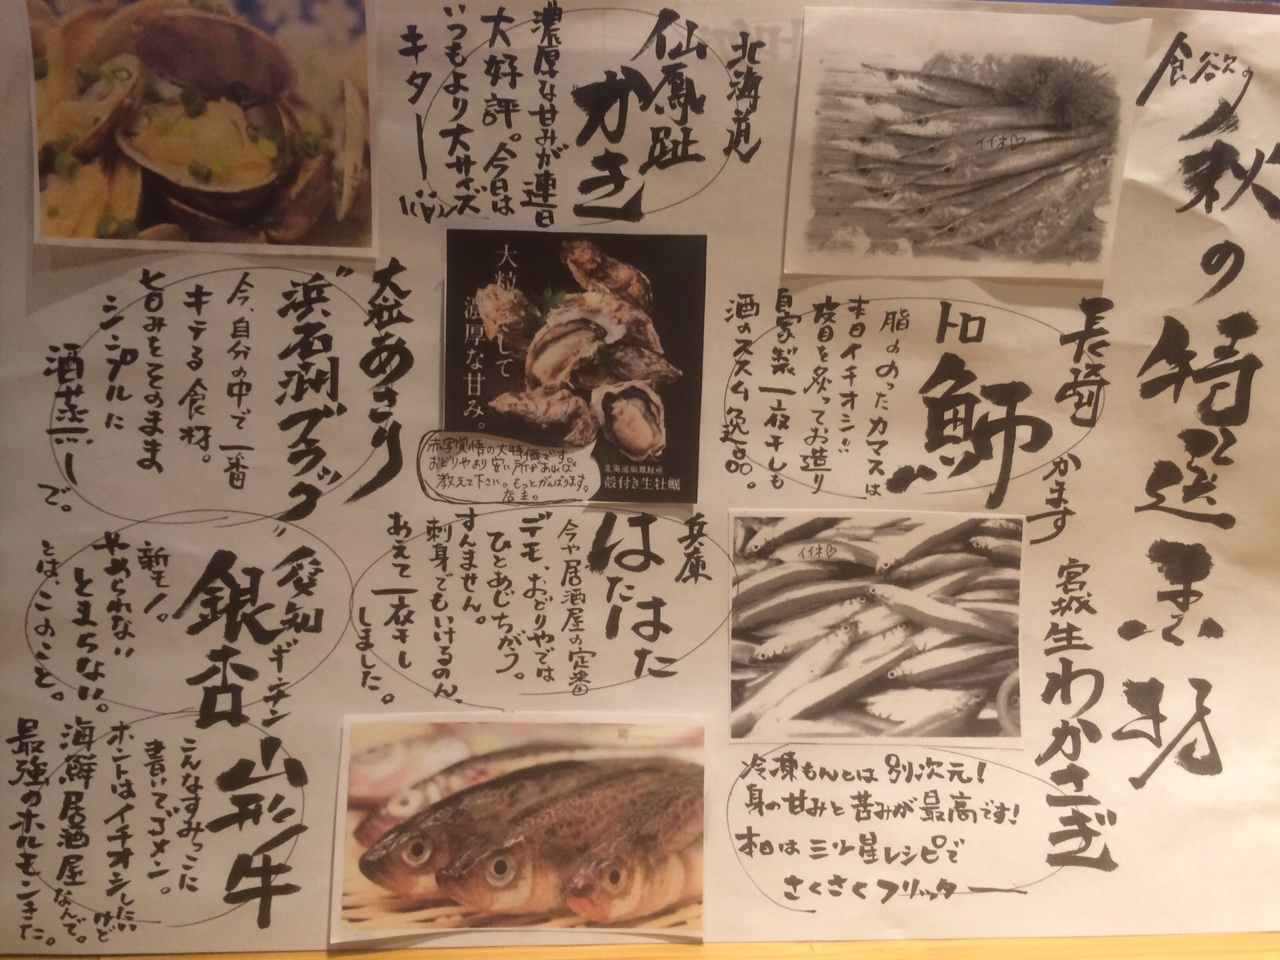 食欲の
秋の特選素材
イイネ
長崎
トロ
魳
かます
脂ののったカマスは
本日イチオシ!!
枝目を炙ってお造り
自家製一夜干しも
酒のススム逸品。
宮城生わかさぎ
イイネ
冷凍もんとは別次元!
身の甘みと苦みが最高です!
本日は三ツ星レシピで
さくさくフリッター
北海道
仙鳳趾
かき
濃厚な甘みが連日
大好評。今日は
いつもより大サイズ
キター
大粒にして
濃厚な甘み。
北海道仙鳳趾産
殻付き生牡蠣
赤字覚悟の大特価です。
おどりやより安い所があれば
教えて下さい。もっとがんばります。
店主。
兵庫
はたはた
今や居酒屋の定番
デモ、おどりやでは
ひとあじちがう。
すんません。
刺身でもいけるのん、
あえて一夜干し
しました。
大粒あさり
"浜名湖ブラック"
今、自分の中で一番
キテる食材。
旨みをそのまま
シンプルに
酒蒸しーで。
愛知
銀杏
ギンナン
新モノ。
やめられない
とまらない。
とは、このこと。
山形牛
こんなすみっこに
書いてゴメン。
ホントはイチオシしたいけど
海鮮居酒屋なんで。
最強のホルモンきた。